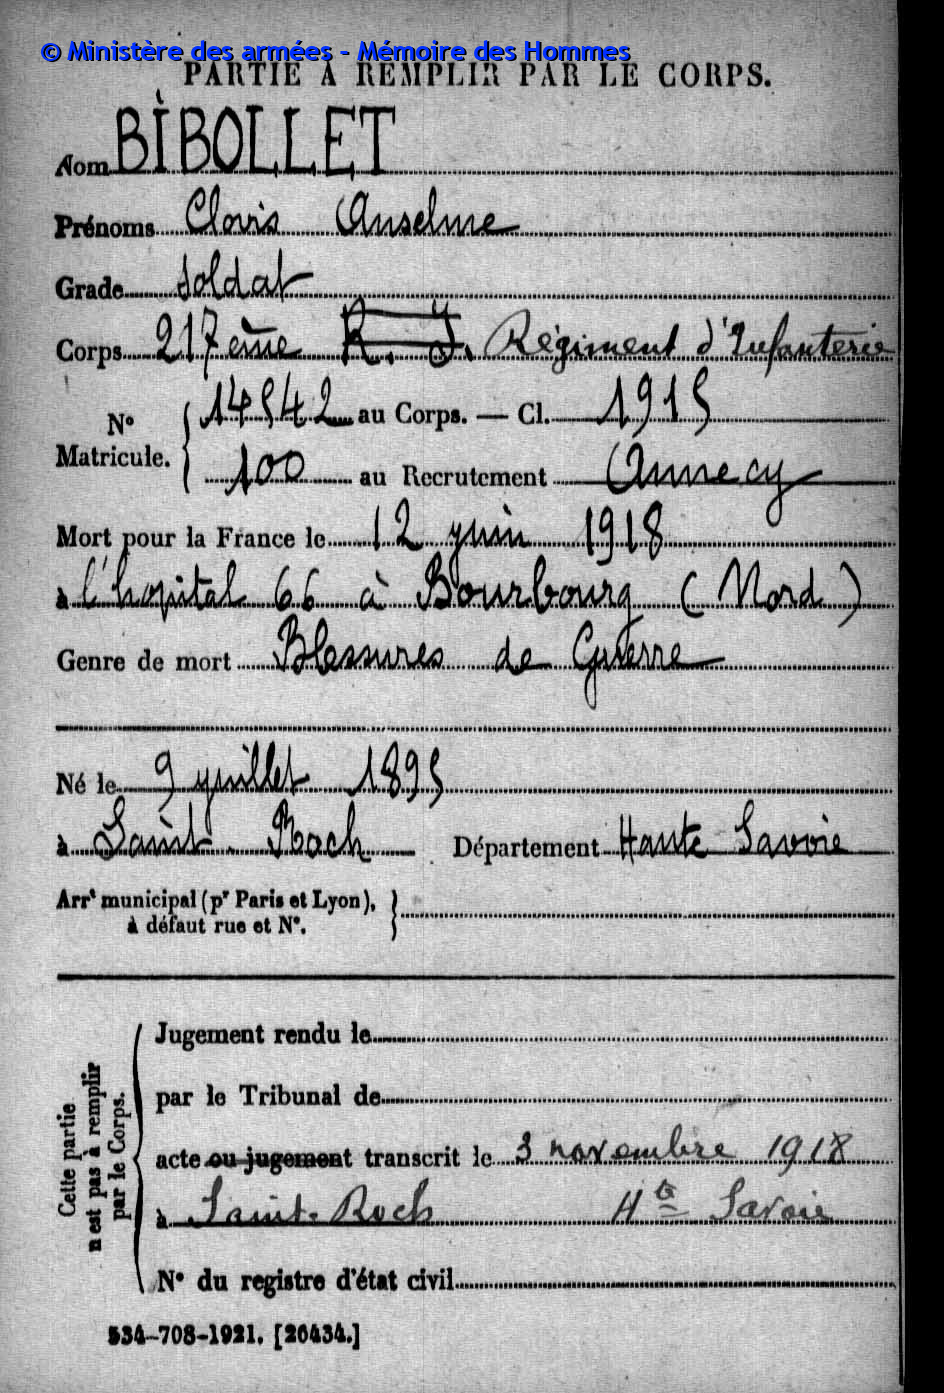 © Ministère des armées - Mémoire des Hommes
PARTIE A REMPLIR PAR LE CORPS.
Nom BIBOLLET
Prénoms Clovis Anselme
Grade Soldat
Corps 217ème R. I. Régiment d'Infanterie
N° Matricule. { 14542 au Corps. — Cl. 1915
100 au Recrutement Annecy
Mort pour la France le 12 juin 1918
à l'hopital 66 à Bourbourg (Nord)
Genre de mort Blessures de Guerre
Né le 9 juillet 1895
à Saint-Roch Département Haute Savoie
Arrt municipal (pr Paris et Lyon), }
à défaut rue et N°.
Cette partie n'est pas à remplir par le Corps.
Jugement rendu le
par le Tribunal de
acte ou jugement transcrit le 3 novembre 1918
à Saint-Roch Hte Savoie
N° du registre d'état civil
534-708-1921. [26434.]